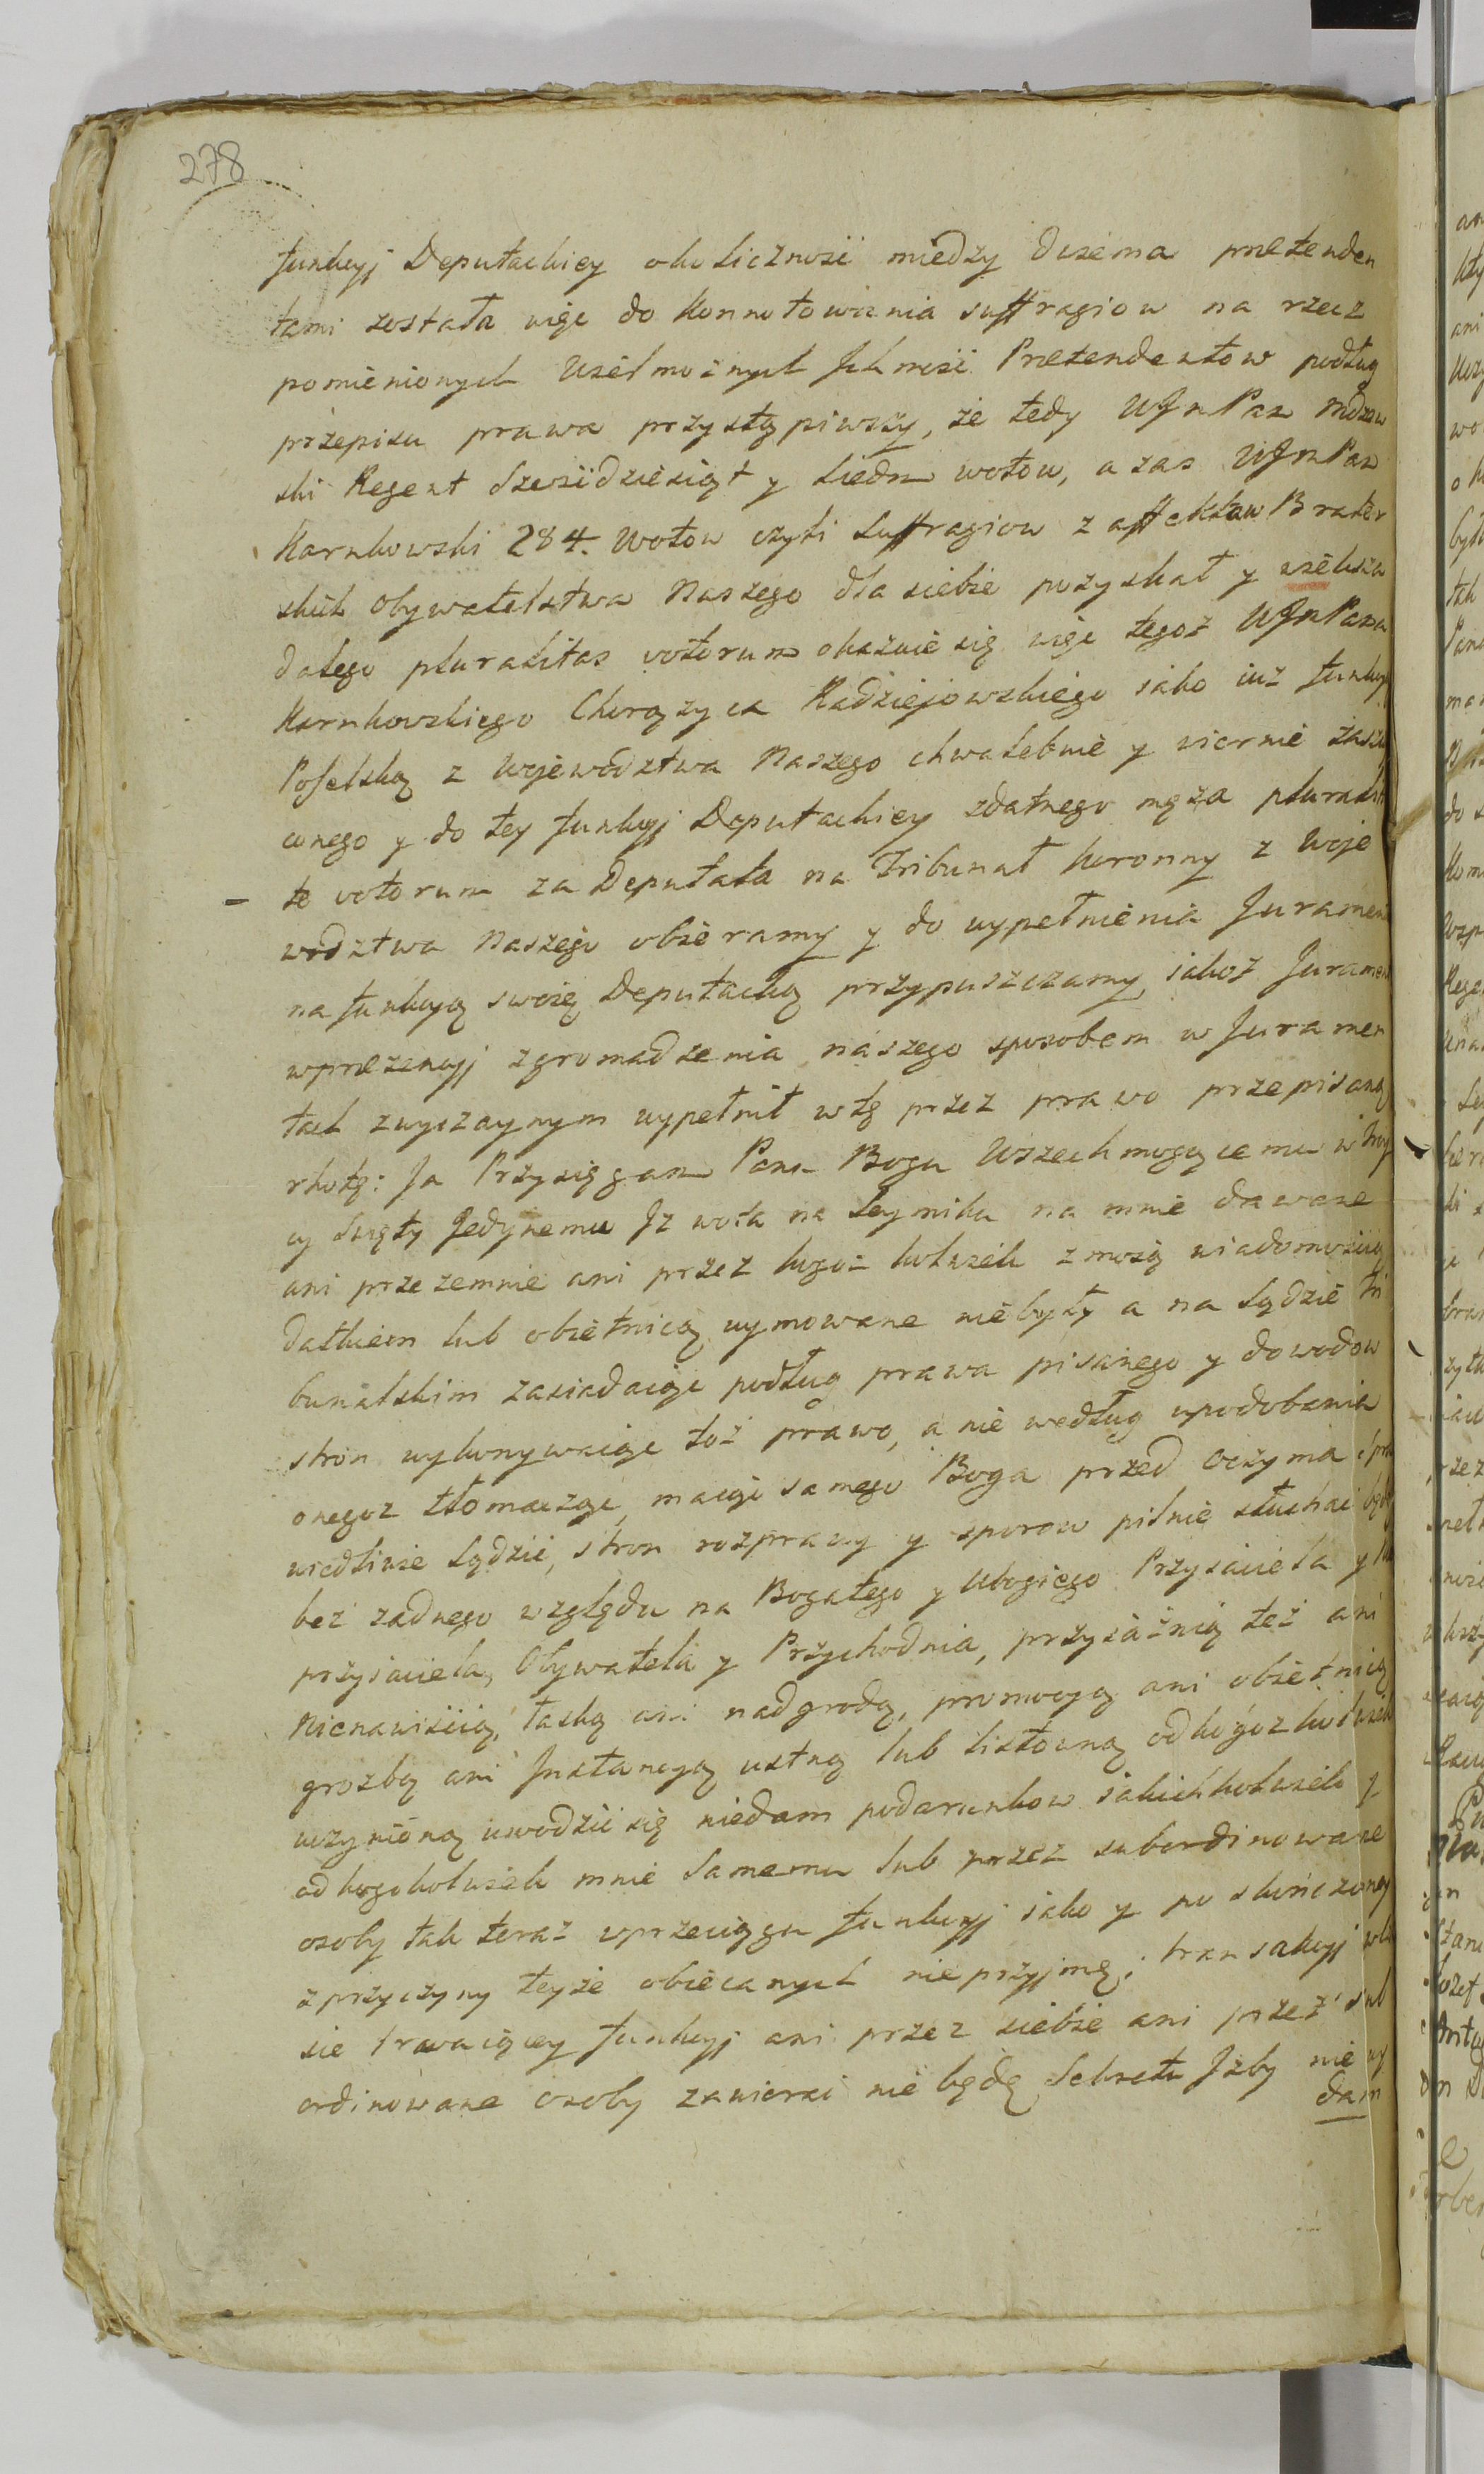 278
funkcyj Deputackiey okoliczność między dwiema prætenden
tami została więc do konnotowania suffragiow na rzecz
pomienionych Wielmożnych Jchmość Prætendentow podług
przepisu prawa przystąpiwszy, że tedy WJmPan
ski Regent sześćdziesiąt y siedm wotow, a zas WJmPan
Karnkowski 284. Wotow czyli Suffragiow z affektow Brater
skich Obywatelstwa Naszego dla siebie pozyskał y wieksza
datego pluralitas votorum okazuie się więc tegoż WJmPana
Karnkowskiego Chorążyca Radziejowskiego iako iuż funkcyą
Poselską z Wojewodztwa Naszego chwalebnie y wiernie zaszczy
conego y do tey funkcyj Deputackiey zdatnego męża plurali
te votorum za Deputata na Tribunał Koronny z Woje
wodztwa Naszego obieramy y do wypełnienia Juramentu
na funkcyą swoią Deputacką przypuszczamy, iakoż Jurament
w prezencyj zgromadzenia naszego sposobem w Juramen
tach zwyczaynym wypełnił w tę przez prawo przepisaną
rhotę: Ja Przysięgam Panu Bogu Wszechmogącemu w Troy
cy Swięty Jedynemu Jż wota na Seymiku na mnie dawane
ani przezemnie ani przez kogoż kolwiek z moią wiadomością
datkiem lub obietnicą uymowane niebyły a na Sądzie Tri
bunalskim zasiadaiąc podług prawa pisanego y dowodow
stron wykonywaiąc toż prawo, a nie według upodobania
onegoz tłomacząc, maiąc samego Boga przed oczyma spra
wiedliwie Sądzić, stron rozprawy y sporow pilnie słuchać będę
bez zadnego względu na Bogatego y Ubogiego Przyiaciela y nie
przyiaciela, Obywatela y Przychodnia, przyiaźnią też ani
Nienawiścią, łaską ani nadgrodą, promocyą ani obietnicą
groźbą ani Jnstancyą ustną lub listowną od kogoż kolwiek
uczynioną uwodzić się niedam podarunkow iakichkolwiek y
od kogokolwiek mnie Samemu lub przez subordinowane
osoby tak teraz w przeciągu funkcyj iako y po skończoney
z przyczyny teyże obiecanych nieprzyjmę; transakcyj wcza
sie trwaiącey funkcyj ani przez siebie ani przez sub
ordinowane osoby zawierać nie będę Sekretu Jzby nie wy
dam